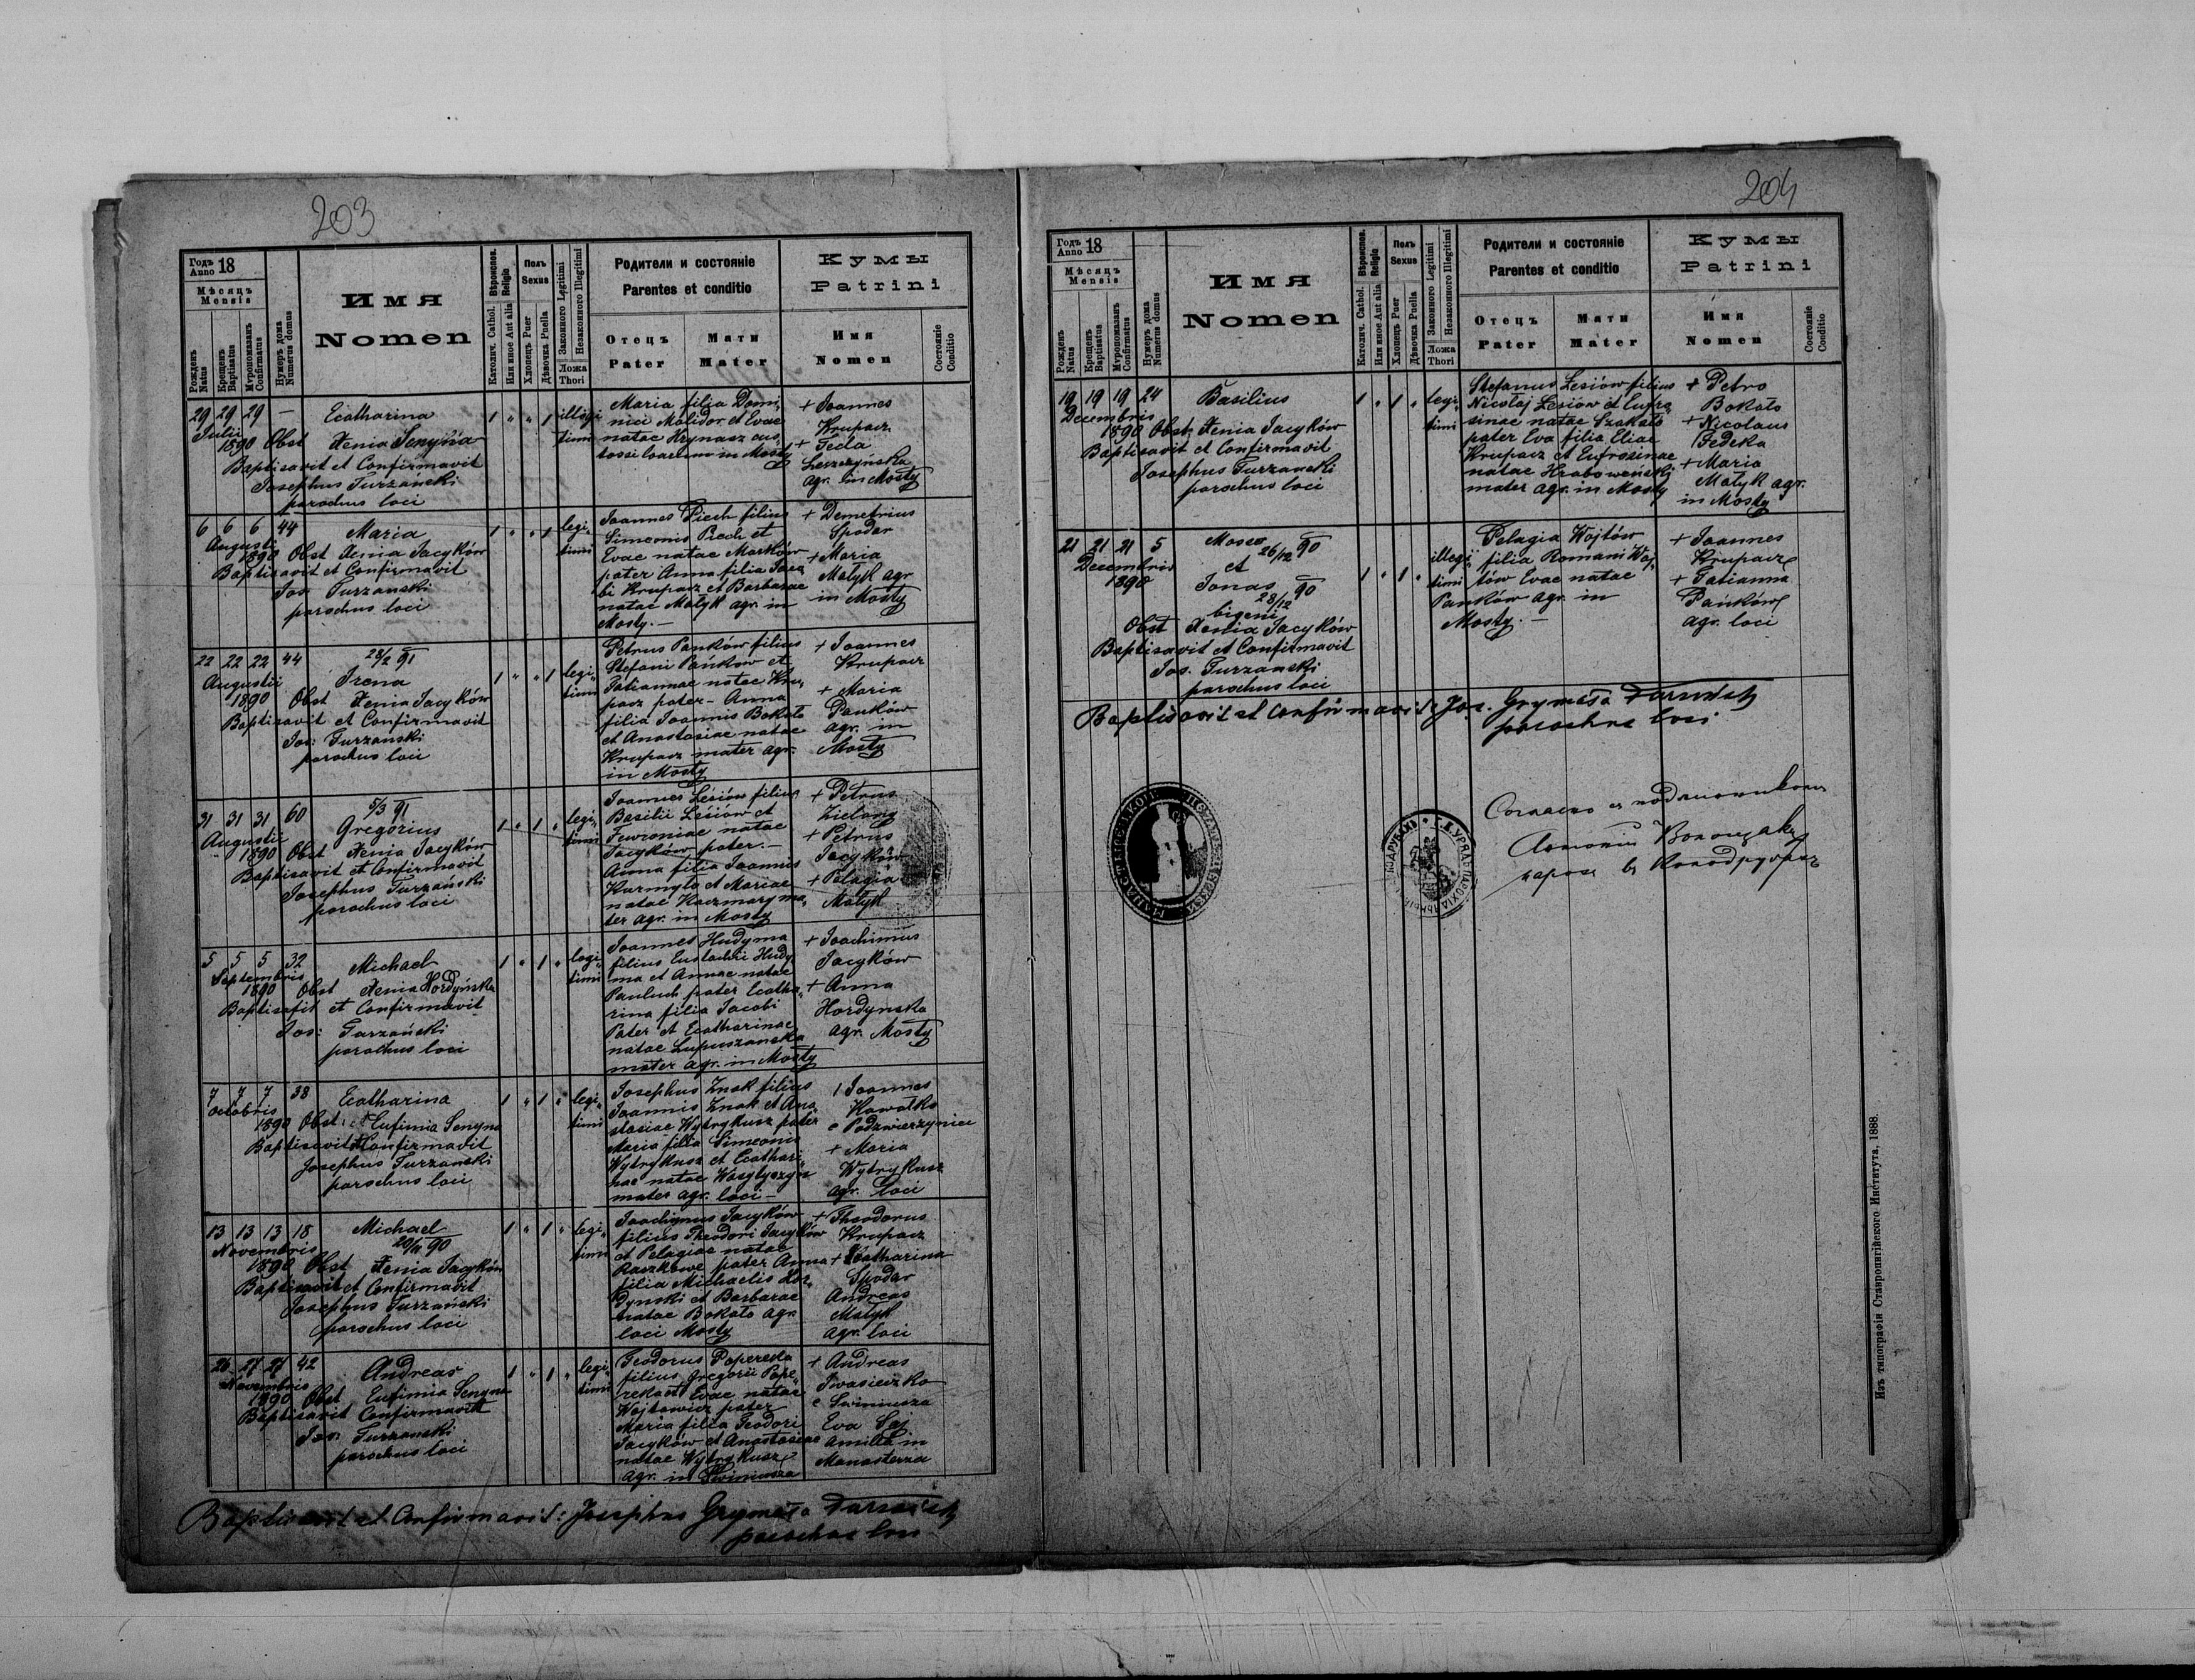 203
Годъ 18
Anno
Мѣсяцъ
Mensis
Рожденъ
Natus
Крещенъ
Baptisatus
Мѵропомазанъ
Confirmatus
Нумеръ дома
Numerus domus
Имя
Nomen
Вѣроиспов.
Religio
Католич. Cathol.
Или иное Aut alia
Полъ
Sexus
Хлопецъ Puer
Дѣвочка Puella
Законного Legitimi
Незаконного Illegitimi
Ложа
Thori
Родители и состояніе
Parentes et conditio
Отецъ
Pater
Мати
Mater
Кумы
Patrini
Имя
Nomen
Состояніе
Conditio
29 29 29 —
Julii
1890
Ecatharina
Obst Xenia Senyna
Baptisavit et Confirmavit
Josephus Turzanski
parochus loci
1 " " 1
illegi
timi
Maria filia Domi
nici Malidor et Evae
natae Hrynasz
in Mosty
+ Joannes
Krupacz
+ Tecla
Leszczyńska
agr. in Mosty
6 6 6 44
Augusti
1890
Maria
Obst Xenia Jacyków
Baptisavit et Confirmavit
Jos. Turzanski
parochus loci
1 " " 1
legi
timi
Joannes Piech filius
Simeonis Piech et
Evae natae Marków
pater Anna filia Jaco
bi Krupacz et Barbarae
natae Matyk agr. in
Mosty. —
+ Demetrius
Spodar
+ Maria
Matyk agr
in Mosty
22 22 22 44
Augustii
1890
28/2 91
Irena
Obst Xenia Jacyków
Baptisavit et Confirmavit
Jos: Turzanski
parochus loci
1 " " 1
legi
timi
Petrus Panków filius
Stefani Panków et
Tatiannae natae Kru
pacz pater - Anna
filia Joannis Bokało
et Anastasiae natae
Krupacz mater agr.
in Mosty
+ Joannes
Krupacz
+ Maria
Panków
agr. in
Mosty
31 31 31 60
Augustii
1890
5/3 91
Gregorius
Obst Xenia Jacyków
Baptisavit et Confirmavit
Josephus Turzański
parochus loci
1 " 1 "
legi
timi
Joannes Lesiów filius
Basilii Lesiów et
Fewroniae natae
Jacyków pater. —
Anna filia Joannis
Karmyło et Mariae
natae Kaczmary ma
ter agr. in Mosty
+ Petrus
Zielany
+ Petrus
Jacyków
+ Pelagia
Matyk
5 5 5 32
Septembris
1890
Michael
Obst Xenia Hordyńska
Baptisavit et Confirmavit
Jos: Turzański
parochus loci
1 " 1 "
legi
timi
Joannes Hudyma
filius Eustachii Hudy
ma et Annae natae
Pauluch pater Ecatha
rina filia Jacobi
Pater et Ecatharinae
natae Łupuszanska
mater agr. in Mosty
+ Joachimus
Jacyków
+ Anna
Hordynska
agr. Mosty
7 7 7 38
Octobris
1890
Ecatharina
Obst: Eufimia Senyna
Baptisavit et Confirmavit
Josephus Turzanski
parochus loci
1 " 1 "
legi
timi
Josephus Znak filius
Joannis Znak et Ana
stasiae Wytrykusz pater
Maria filia Simeonis
Wytrykusz et Ecathari
nae natae Wasylyszyn
mater agr. loci —
Joannes
Kowalko
e Podzwierzyniec
+ Maria
Wytrykusz
agr. loci
13 13 13 18
Novembris
1890
Michael
20/11 90
Obst Xenia Jacyków
Baptisavit et Confirmavit
Josephus Turzański
parochus loci
1 " 1 "
legi
timi
Joachymus Jacyków
filius Theodori Jacyków
et Pelagiae natae
pater Anna
filia Michaelis Hor
dynski et Barbarae
natae Bokało agr.
loci Mosty
+ Theodorus
Krupacz
+ Ecatharina
Spodar
Andreas
Matyk
agr. loci
26 27 27 42
Novembris
1890
Andreas
Obst Eufimia Senyna
Baptisavit Confirmavit
Jos: Turzanski
parochus loci
1 " 1 "
legi
timi
Teodorus Papereka
filius Gregorii Pape
reka et Evae natae
Wojtowicz pater
Maria filia Teodori
Jacyków et Anastasiae
natae Wytrykusz
agr. in
+ Andreas
Iwasieczko
e
Eva Saj
in
Manasterza
Baptisavit et Confirmavit: Josephus Grymała Turzański
parochus loci
204
Годъ 18
Anno
Мѣсяцъ
Mensis
Рожденъ
Natus
Крещенъ
Baptisatus
Мѵропомазанъ
Confirmatus
Нумеръ дома
Numerus domus
Имя
Nomen
Вѣроиспов.
Religio
Католич. Cathol.
Или иное Aut alia
Полъ
Sexus
Хлопецъ Puer
Дѣвочка Puella
Законного Legitimi
Незаконного Illegitimi
Ложа
Thori
Родители и состояніе
Parentes et conditio
Отецъ
Pater
Мати
Mater
Кумы
Patrini
Имя
Nomen
Состояніе
Conditio
19 19 19 24
Decembris
1890
Basilius
Obst Xenia Jacyków
Baptisavit et Confirmavit
Josephus Turzanski
parochus loci
1 " 1 "
legi
timi
Stefanus Lesiów filius
Nicołaj Lesiów et Eufro
sinae natae Szakało
pater Eva filia Eliae
Krupacz et Eufrosinae
natae Hrabowenski
mater agr. in Mosty
+ Petro
Bokało
+ Nicolaus
Fedeka
+ Maria
Matyk agr.
in Mosty
21 21 21 5
Decembris
1890
Moses
26/12 90
et
Jonas
28/12 90
bigeni
Obst Xenia Jacyków
Baptisavit et Confirmavit
Jos. Turzanski
parochus loci
1 " 1 "
illegi
timi
Pelagia Wojtów
filia Romani Woj
tów Evae natae
Panków agr. in
Mosty. —
+ Joannes
Krupacz
+ Tatianna
Pańków
agr. loci
Baptisavit et Confirmavit: Jos. Grymała Turzański
parochus loci
Согласно съ подлинникомъ
Изъ типографіи Ставропигійского Института, 1888.